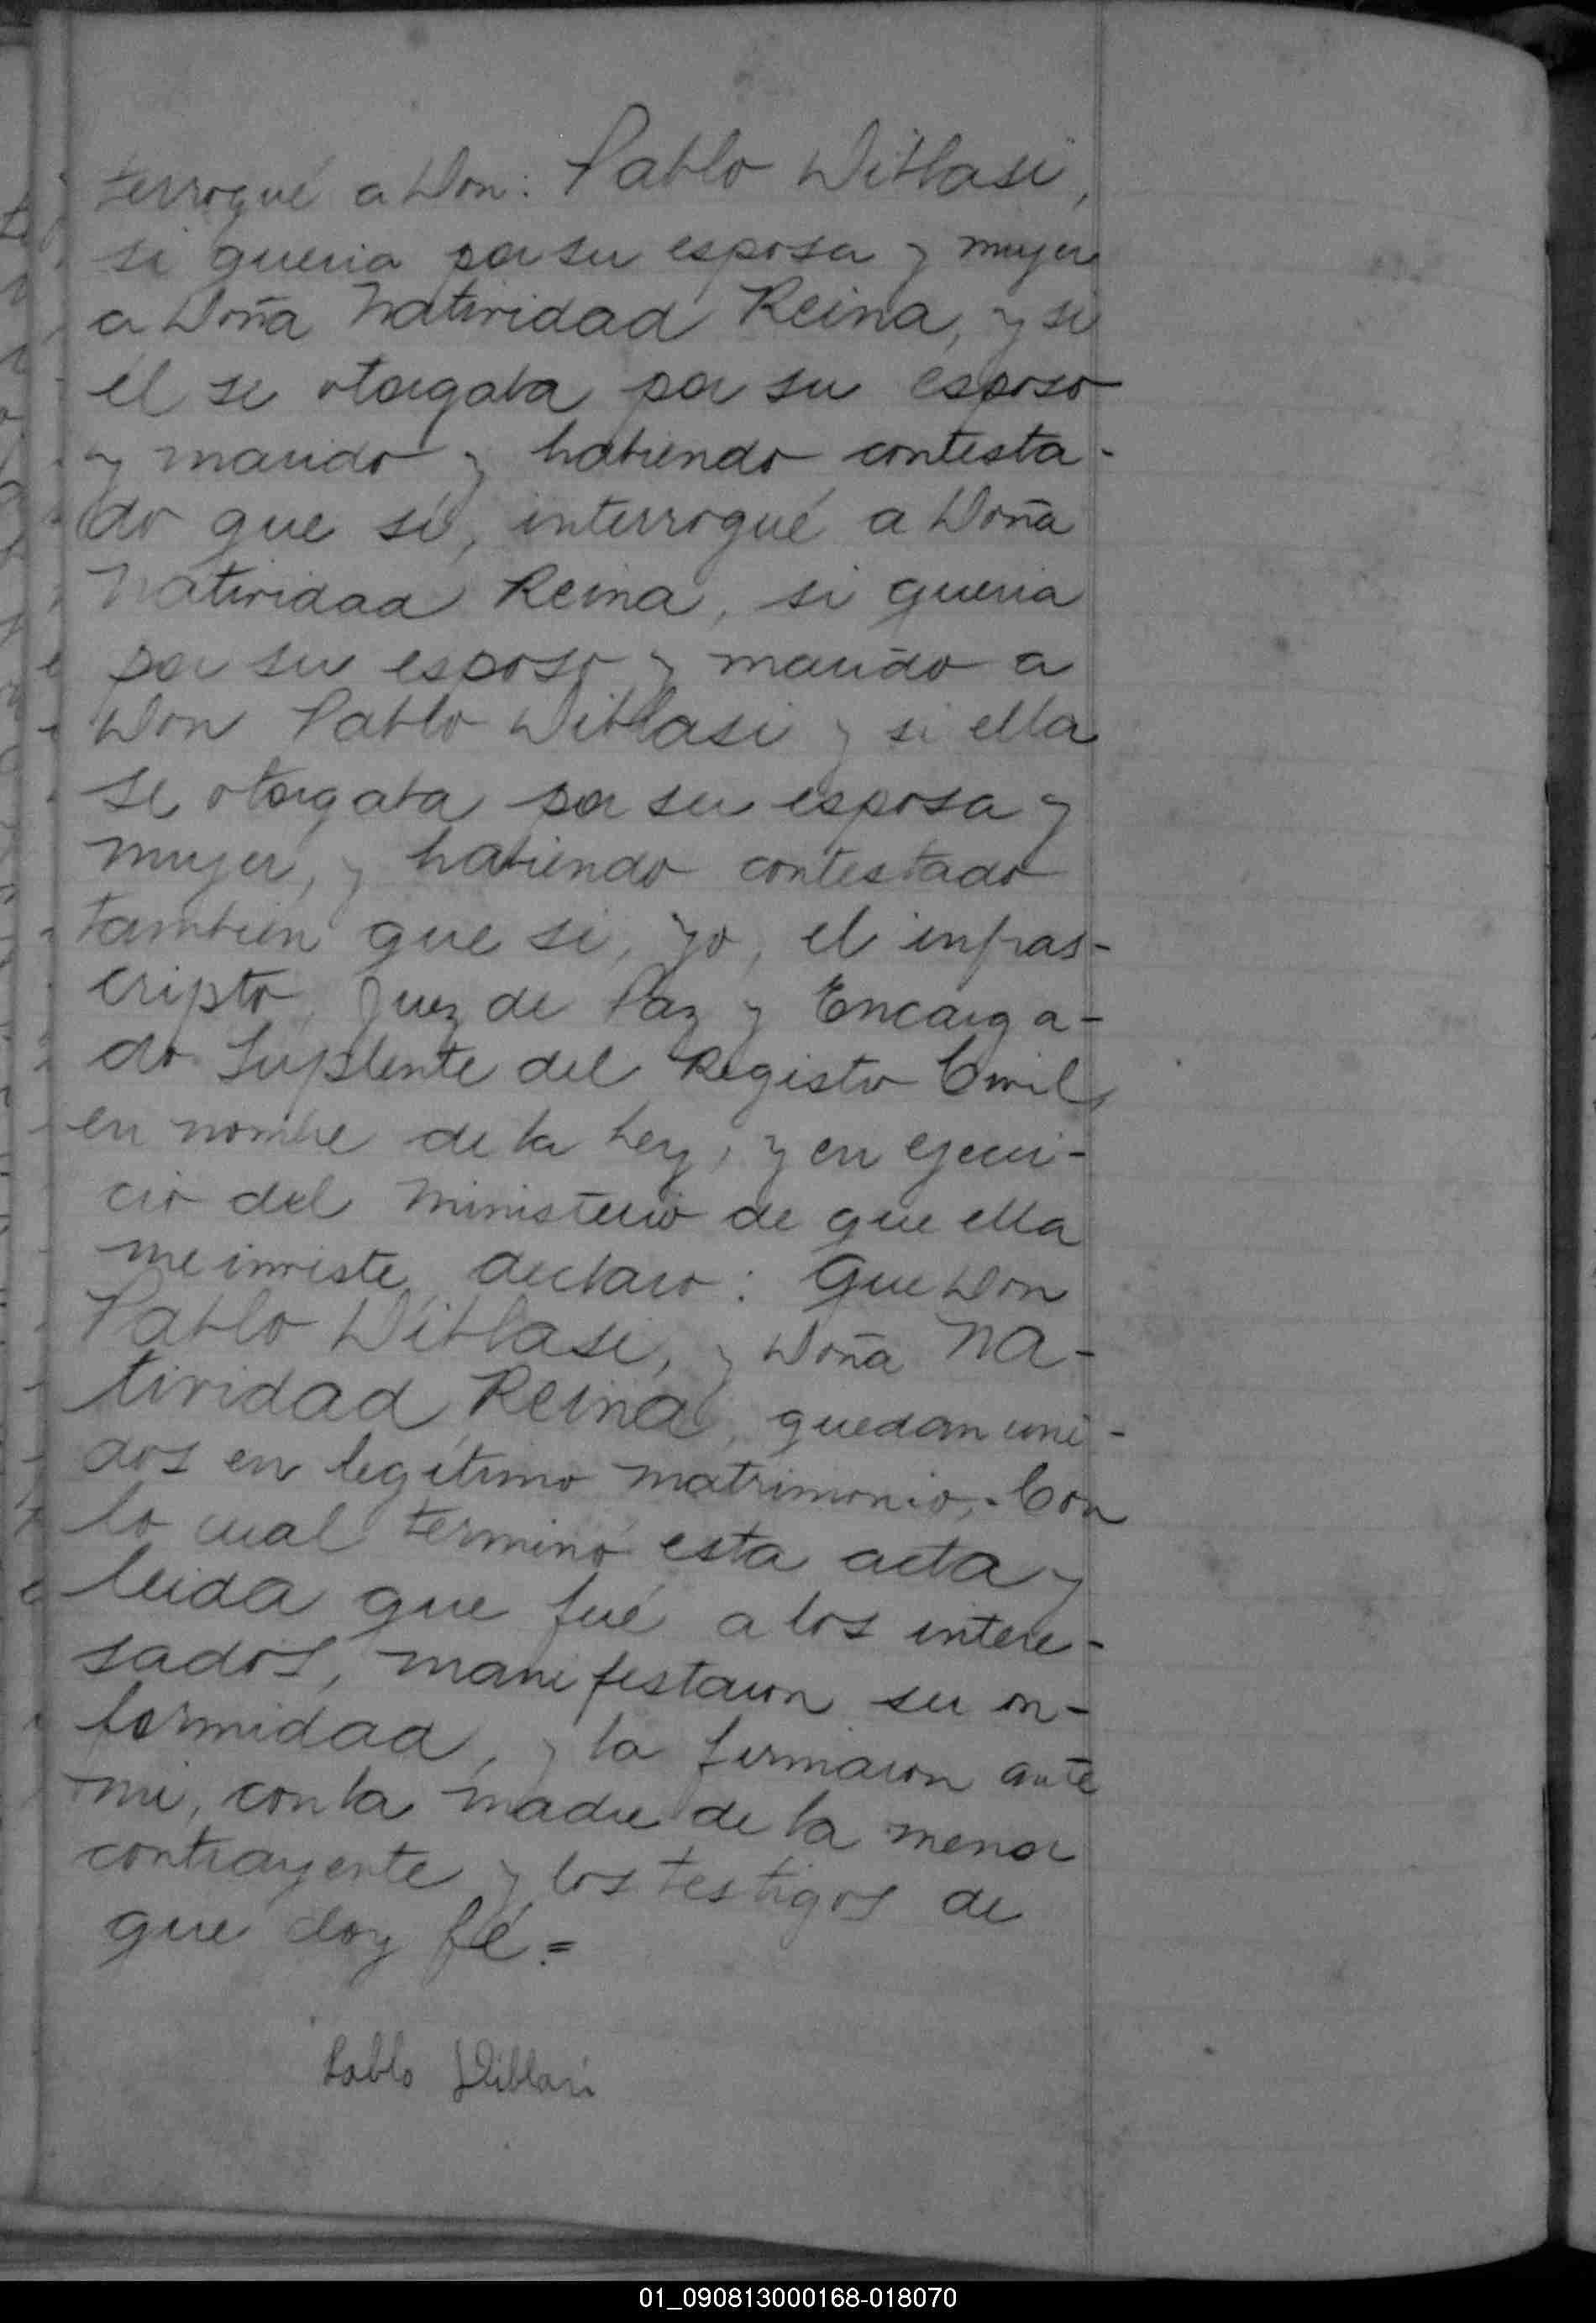 terrogué a Don: Pablo Diblasi,
si queria por su esposa y mujer
a Doña Natividad Reina, y si
él se otorgaba por su esposo
y marido y habiendo contesta-
do que sí, interrogué a Doña
Natividad Reina, si queria
por su esposo y marido a
Don Pablo Diblasi y si ella
se otorgaba por su esposa y
mujer, y habiendo contestado
tambien que si, yo, el infras-
cripto, Juez de Paz y Encarga-
do Suplente del Registro Civil,
en nombre de la Ley, y en ejerci-
cio del Ministerio de que ella
me inviste, declaro: Que Don
Pablo Diblasi, y Doña Na-
tividad Reina, quedan uni-
dos en legítimo matrimonio,- Con
lo cual terminó esta acta y
leida que fué a los intere-
sados, manifestaron su con-
formidad, y la firmaron ante
mi, con la madre de la menor
contrayente y los testigos de
que doy fé.=
Pablo Diblasi
01_090813000168-018070